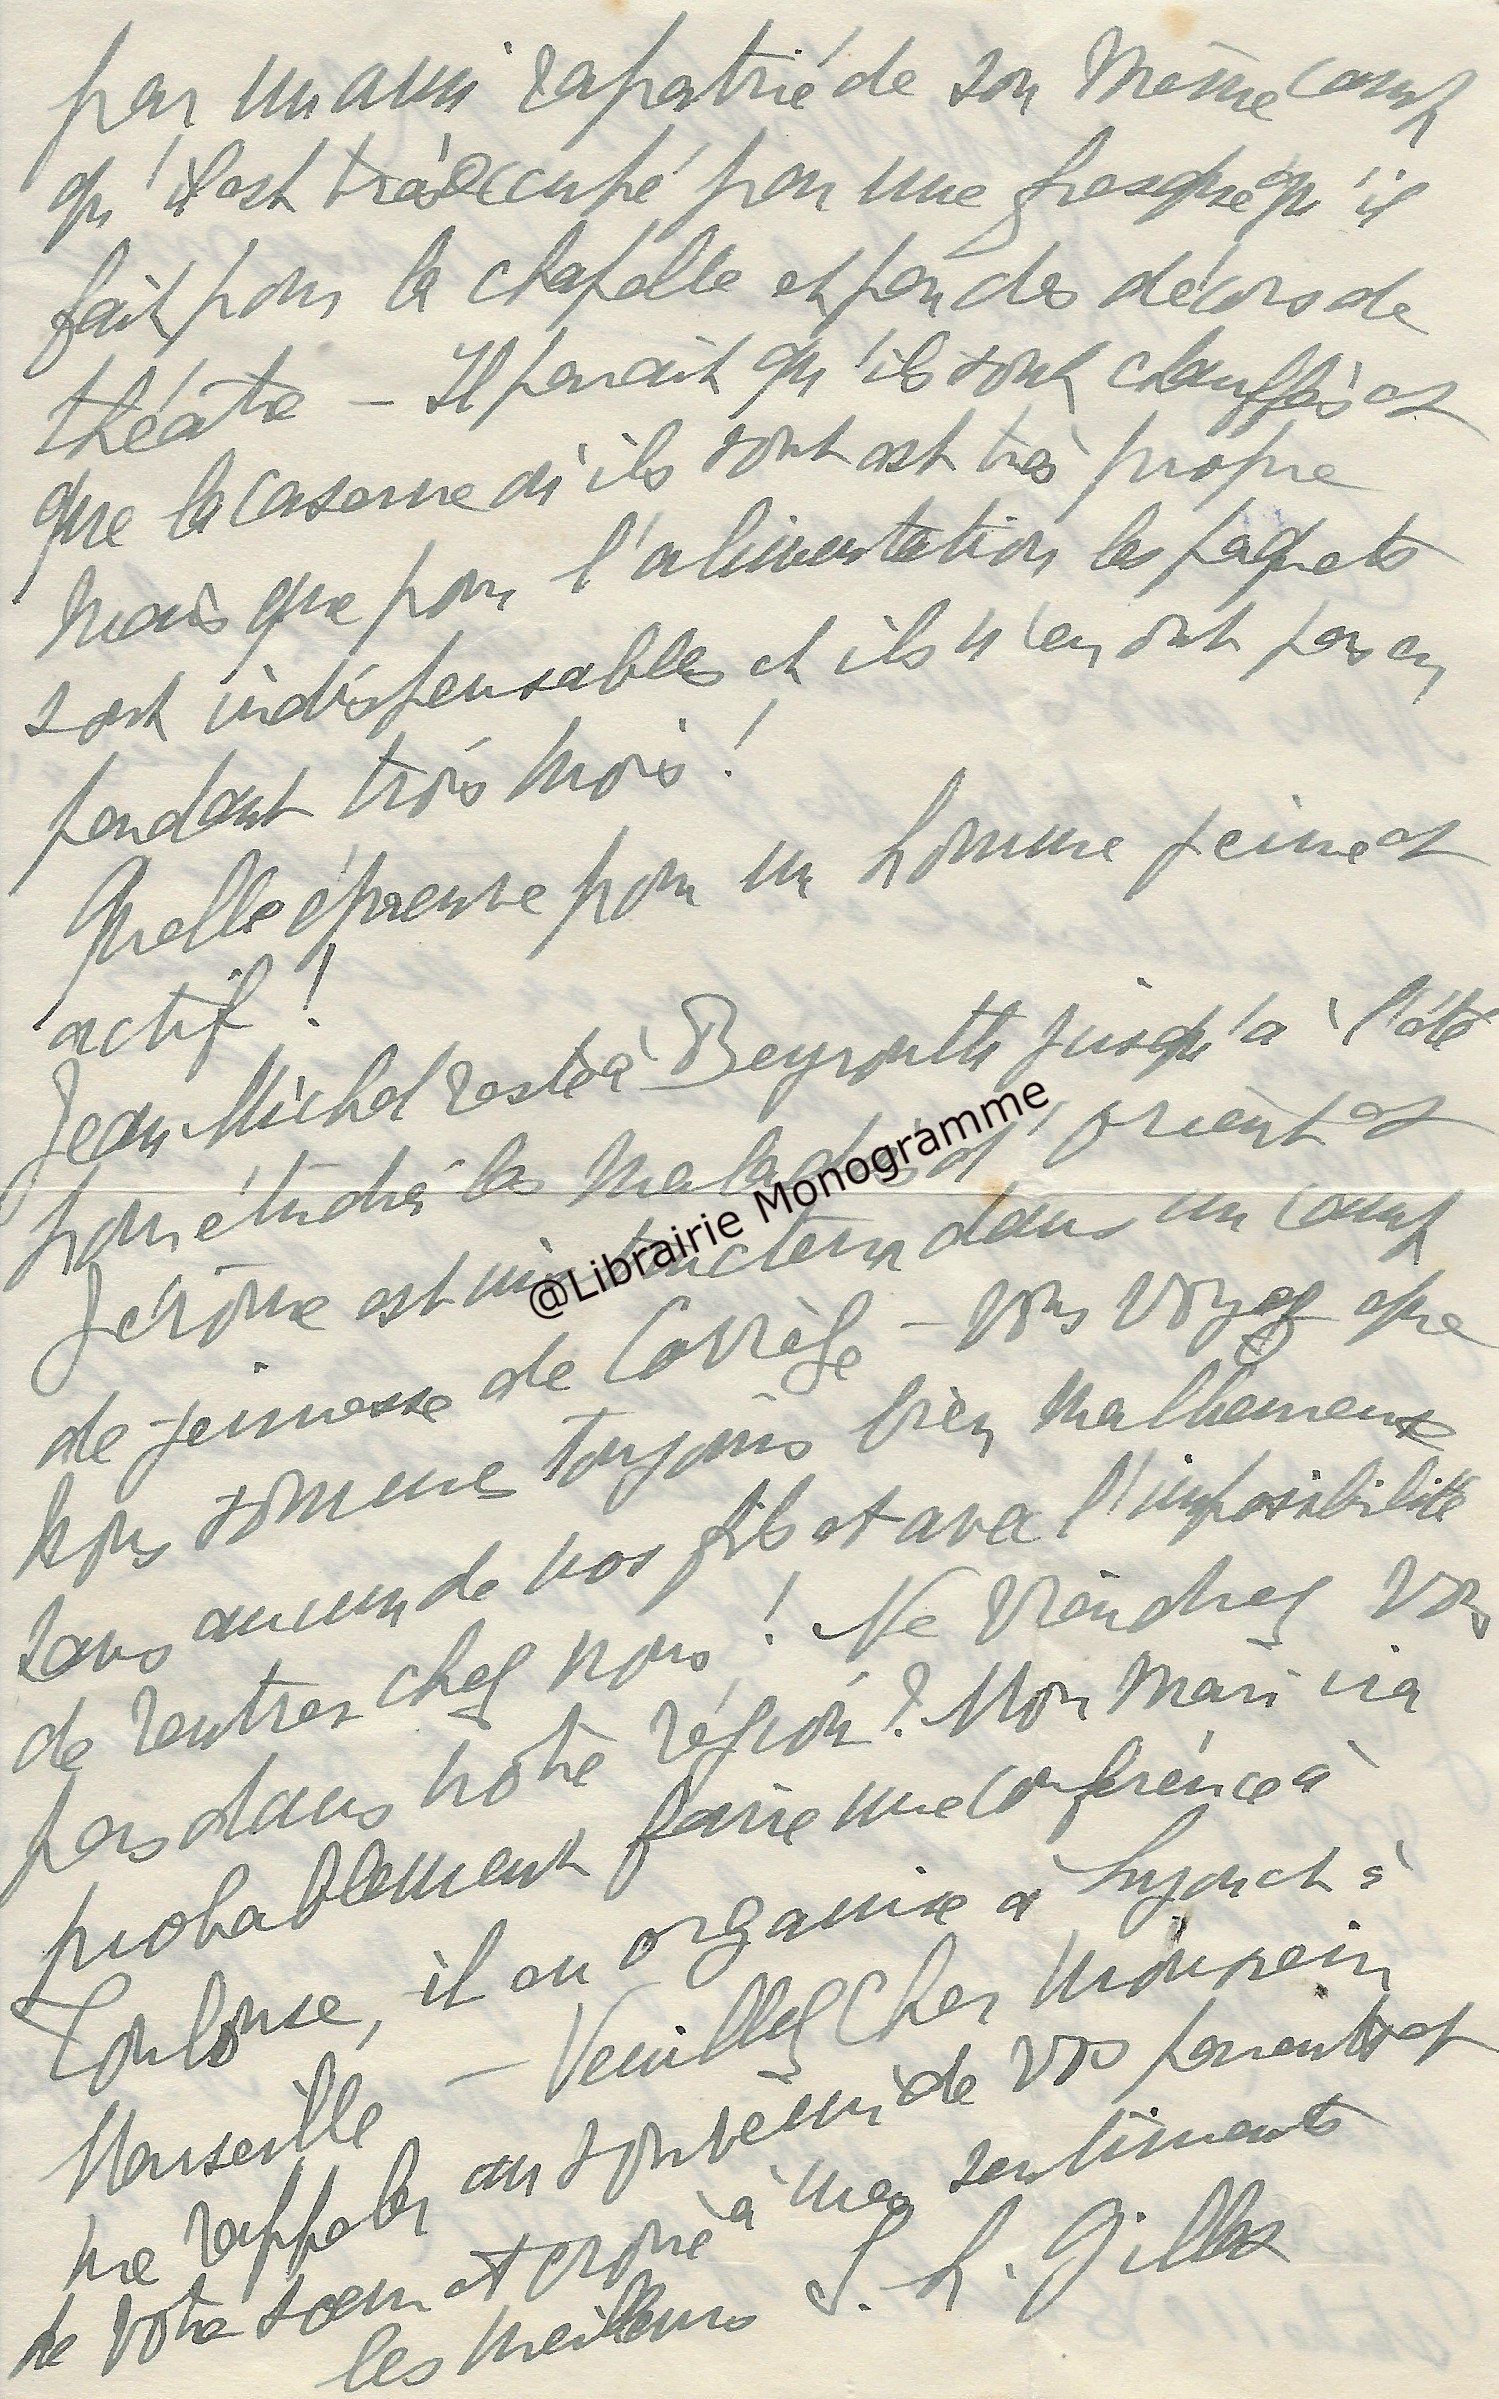 par un ami rapatrié de son même camp
qu'il est très occupé par une fresque qu'il
fait pour la chapelle et par des décors de
théâtre – Il parait qu'ils sont chauffés et
que la caserne où ils sont est très propre
mais que pour l'alimentation les paquets
sont indispensables et ils n'en ont pas eu
pendant trois mois !
Quelle épreuve pour un homme jeune et
actif !
Jean Michel reste à Beyrouth jusqu'à l'été
pour étudier les maladies d'orient et
Jérôme est instructeur dans un camp
de jeunesse de Corrèze – Vous voyez que
nous sommes toujours bien malheureux
sans aucun de nos fils et avec l'impossibilité
de rentrer chez nous ! Ne viendrez vous
pas dans notre région ? Mon mari ira
probablement faire une conférence à
Toulouse, il en organise à Lyon et à
Marseille – Veuillez cher monsieur
me rappeler au souvenir de vos parents et
de votre soeur et croire à mes sentiments
les meilleurs S. L. Gillet
@Librairie Monogramme